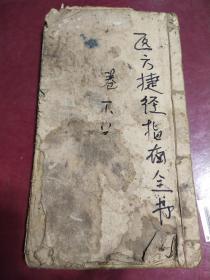 医方捷径指南全书
卷下